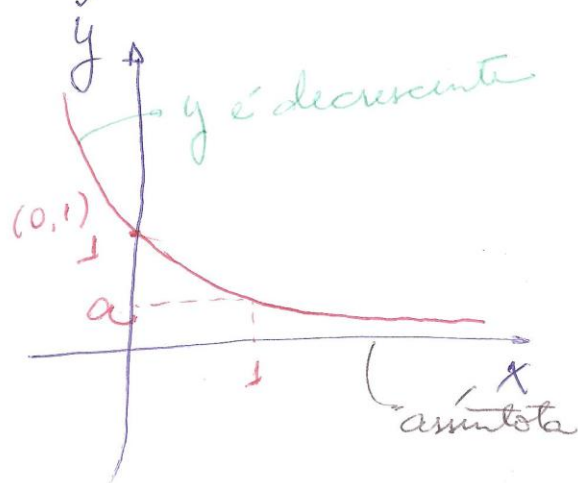 y
y é decrescente
(0,1)
1
a
1
x
assíntota